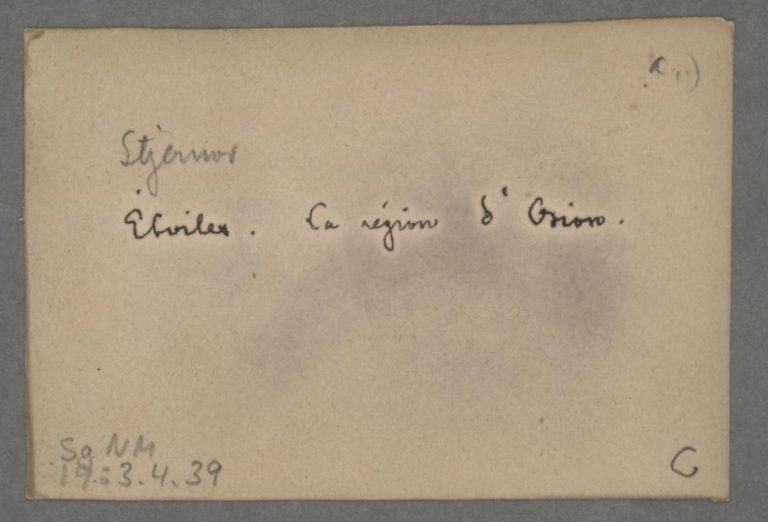 a 11)
Stjernor
Étoiles. La région d'Orion.
Sg NM
19:3.4.39
C